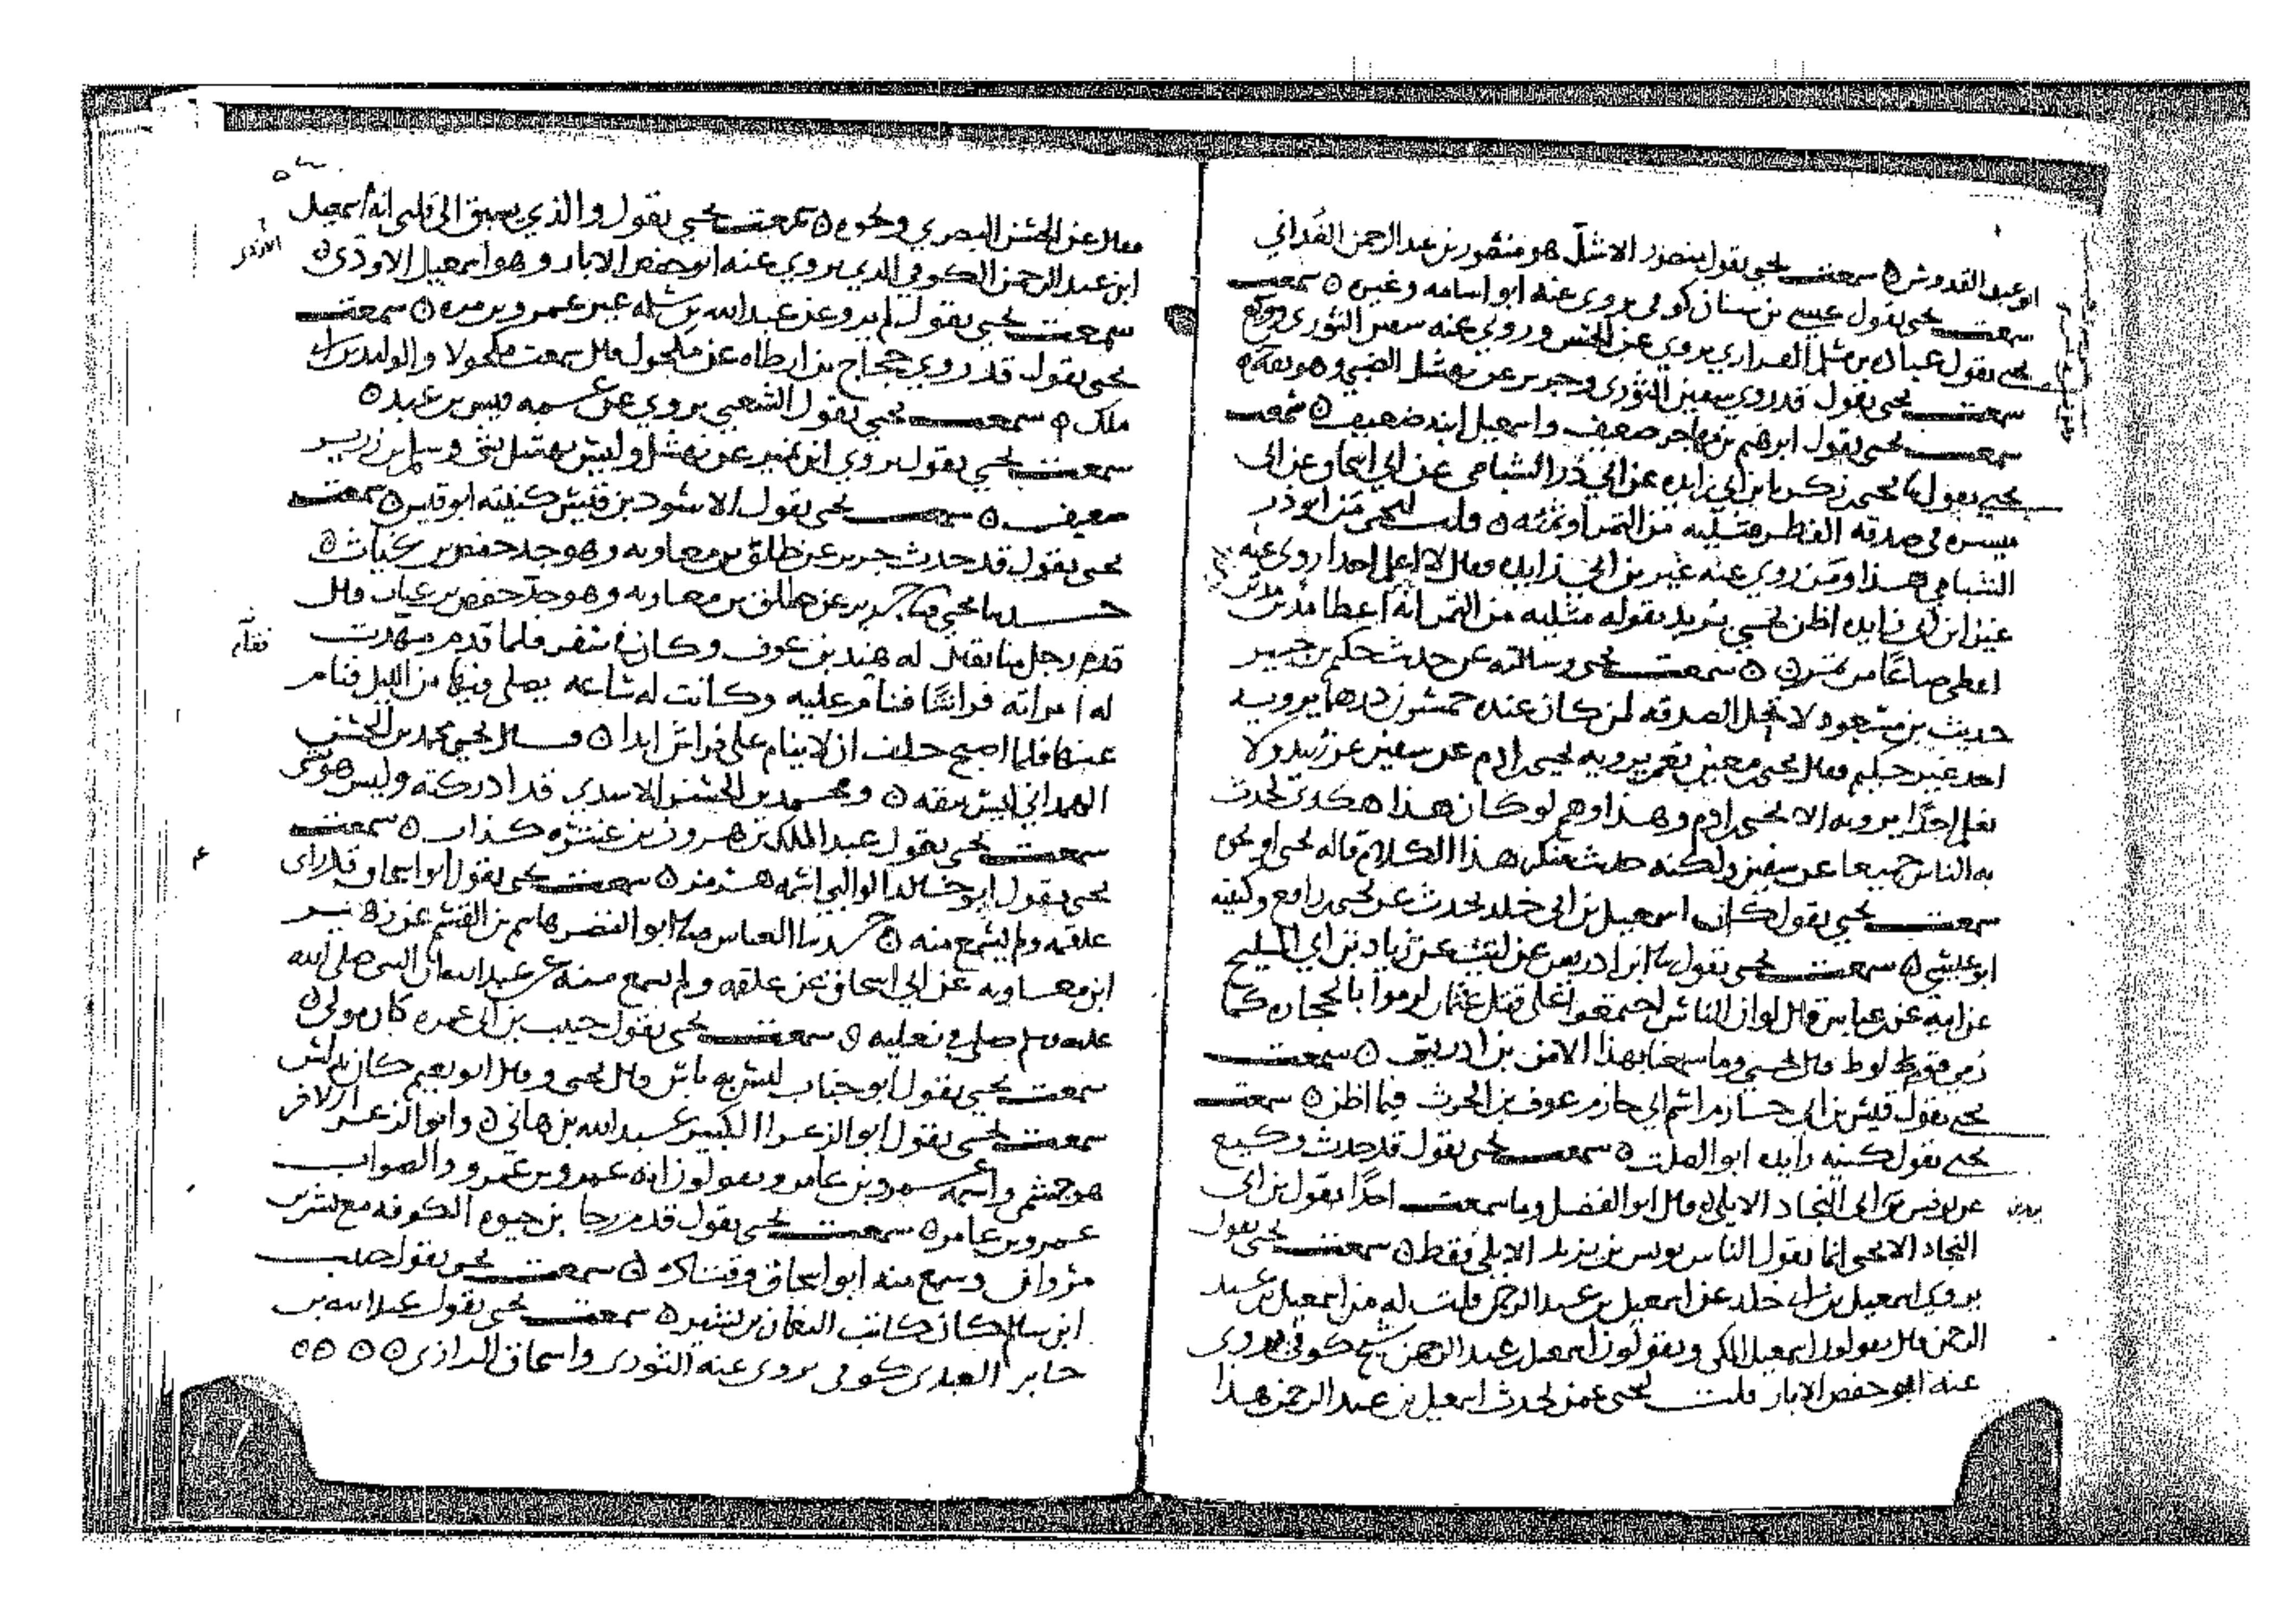 ابو عبد القدوس ٥ سمعت يحيى يقول منصور الاشل هو منصور بن عبد الرحمن الغُداني
سمعت يحيى يقول عيسى بن سنان كوفي يروي عنه ابو اسامه وغيره ٥ سمعت
يحيى يقول عباد بن الفزاري يروي عن الحسن وروى عنه سفين الثوري
سمعت يحيى يقول قد روى سفين الثوري وجرير عن نهشل الضبي وهو ثقه
سمعت يحيى يقول ابرهيم بن مهاجر ضعيف واسمعيل ابنه ضعيف ٥ سمعت
يحيى يقول نا يحيى بن زكريا بن ابي زايده عن ابي ذر الشبامي عن ابي اسحاق عن ابي
ميسره في صدقه الفطر من التمر ٥ قلت ليحيى من ابو ذر
الشبامي هذا ومن روى عنه غير بن ابي زايده فقال لا اعلم احدا روى عنه
غير ابن ابي زايده اظن يحيى يريد بقوله مثليه من التمر انه اعطا مدين
اعطى صاعًا من تمر ٥ سمعت يحيى وسالته عن حديث حكيم بن جبير
حديث بن مسعود لا تحل الصدقه لمن كان عنده خمسون درهما يرويه
احد غير حكيم فقال يحيى بن معين نعم يرويه يحيى بن ادم عن سفين عن زبيد ولا
نعلم احدًا يرويه الا يحيى بن ادم وهذا وهم لو كان هذا هكذى لحدث
به الناس جميعا عن سفين ولكنه حديث منكر هذا الكلام قاله يحيى او نحوه
سمعت يحيى يقول كان اسمعيل بن ابي خلد يحدث عن يحيى بن رافع وكنيته
ابو عيسى ٥ سمعت يحيى يقول نا ابن ادريس عن ليث عن زياد بن ابي المليح
عن ابيه عن عباس قال لو ان الناس اجتمعوا على قتل عثمان لرموا بالحجاره كما
رمي قوم لوط قال يحيى وما سمعنا بهذا الا من بن ادريس ٥ سمعت
يحيى يقول قيس بن ابي حازم اسم ابي حازم عوف بن الحرث فيما اظن ٥ سمعت
يحيى يقول كنيه زايده ابو الصلت ٥ سمعت يحيى يقول قد حدث وكيع
عن يونس بن ابي النجاد الايلي قال ابو الفضل وما سمعت احدًا يقول بن ابي
النجاد الا يحيى انما يقول الناس يونس بن يزيد الايلي فقط ٥ سمعت يحيى يقول
يروي اسمعيل بن ابي خلد عن اسمعيل بن عبد الرحمن قلت له من اسمعيل بن عبد
الرحمن قال يقولون اسمعيل المكي ويقولون اسمعيل بن عبد الرحمن شيخ كوفي يروي
عنه ابو حفص الابار قلت ليحيى عمن يحدث اسمعيل بن عبد الرحمن هذا
فقال عن الحسن البصري ونحوه ٥ سمعت يحيى يقول والذي يسبق الى قلبي انه اسمعيل
ابن عبد الرحمن الكوفي الذي يروي عنه ابو حفص الابار وهو اسمعيل الاودي ٥
الازدي
سمعت يحيى يقول لم يرو عن عبد الله بن سلمه غير عمرو بن مره ٥ سمعت
يحيى يقول قد روى حجاج بن ارطاه عن مكحول قال سمعت مكحولا والوليد بن ابي
ملك ٥ سمعت يحيى يقول الشعبي يروي عن عمه قيس بن عبد ٥
سمعت يحيى يقول يروي ابن نمير عن نهشل وليس نهشل بشي وسلم بن زرير
ضعيف ٥ سمعت يحيى يقول الاسود بن قيس كنيته ابو قيس ٥ سمعت
يحيى يقول قد حدث جرير عن طلق بن معاويه وهو جد حفص بن غياث ٥
حدثنا يحيى نا جرير عن طلق بن معاويه وهو جد حفص بن غياث قال
قدم رجل منا يقال له هند بن عوف وكان في سفر فلما قدم مهدت
له امراته فراشًا فنام عليه وكانت له ساعه يصلي فيها من الليل فنام
فنام
عنها فلما اصبح حلف ان لا ينام على فراش ابدا ٥ قال يحيى محمد بن الحسن
الهمداني ليس بثقه ٥ ومحمد بن الحسن الاسدي قد ادركته وليس هو بشي
سمعت يحيى يقول عبد الملك بن هرون بن عنتره كذاب ٥ سمعت
يحيى يقول ابو خالد الوالبي اسمه هرمز ٥ سمعت يحيى يقول ابو اسحاق قد راى
علقمه ولم يسمع منه ٥ حدثنا العباس نا ابو النضر هاشم بن القسم عن زهير
ابن معاويه عن ابي اسحاق عن علقمه ولم يسمع منه عن عبد الله ان النبي صلى الله
عليه وسلم صلى في نعليه ٥ سمعت يحيى يقول حبيب بن ابي عمره كان مولى ٥
سمعت يحيى يقول ابو جناب ليس به باس قال يحيى وقال ابو نعيم كان يدلس
سمعت يحيى يقول ابو الزعرا الكبير عبد الله بن هاني ٥ وابو الزعرا الاخر
هو جشمي واسمه عمرو بن عامر ويقولون انه عمرو بن عمرو والصواب
عمرو بن عامر ٥ سمعت يحيى يقول قدم رجا بن حيوه الكوفه مع بشر بن
مروان وسمع منه ابو اسحاق وقتاده ٥ سمعت يحيى يقول حبيب
ابن سالم كان كاتب النعمان بن بشير ٥ سمعت يحيى يقول عبد الله بن
جابر العبدي كوفي يروي عنه الثوري واسحاق الرازي ٥ ٥ ٥ ٥